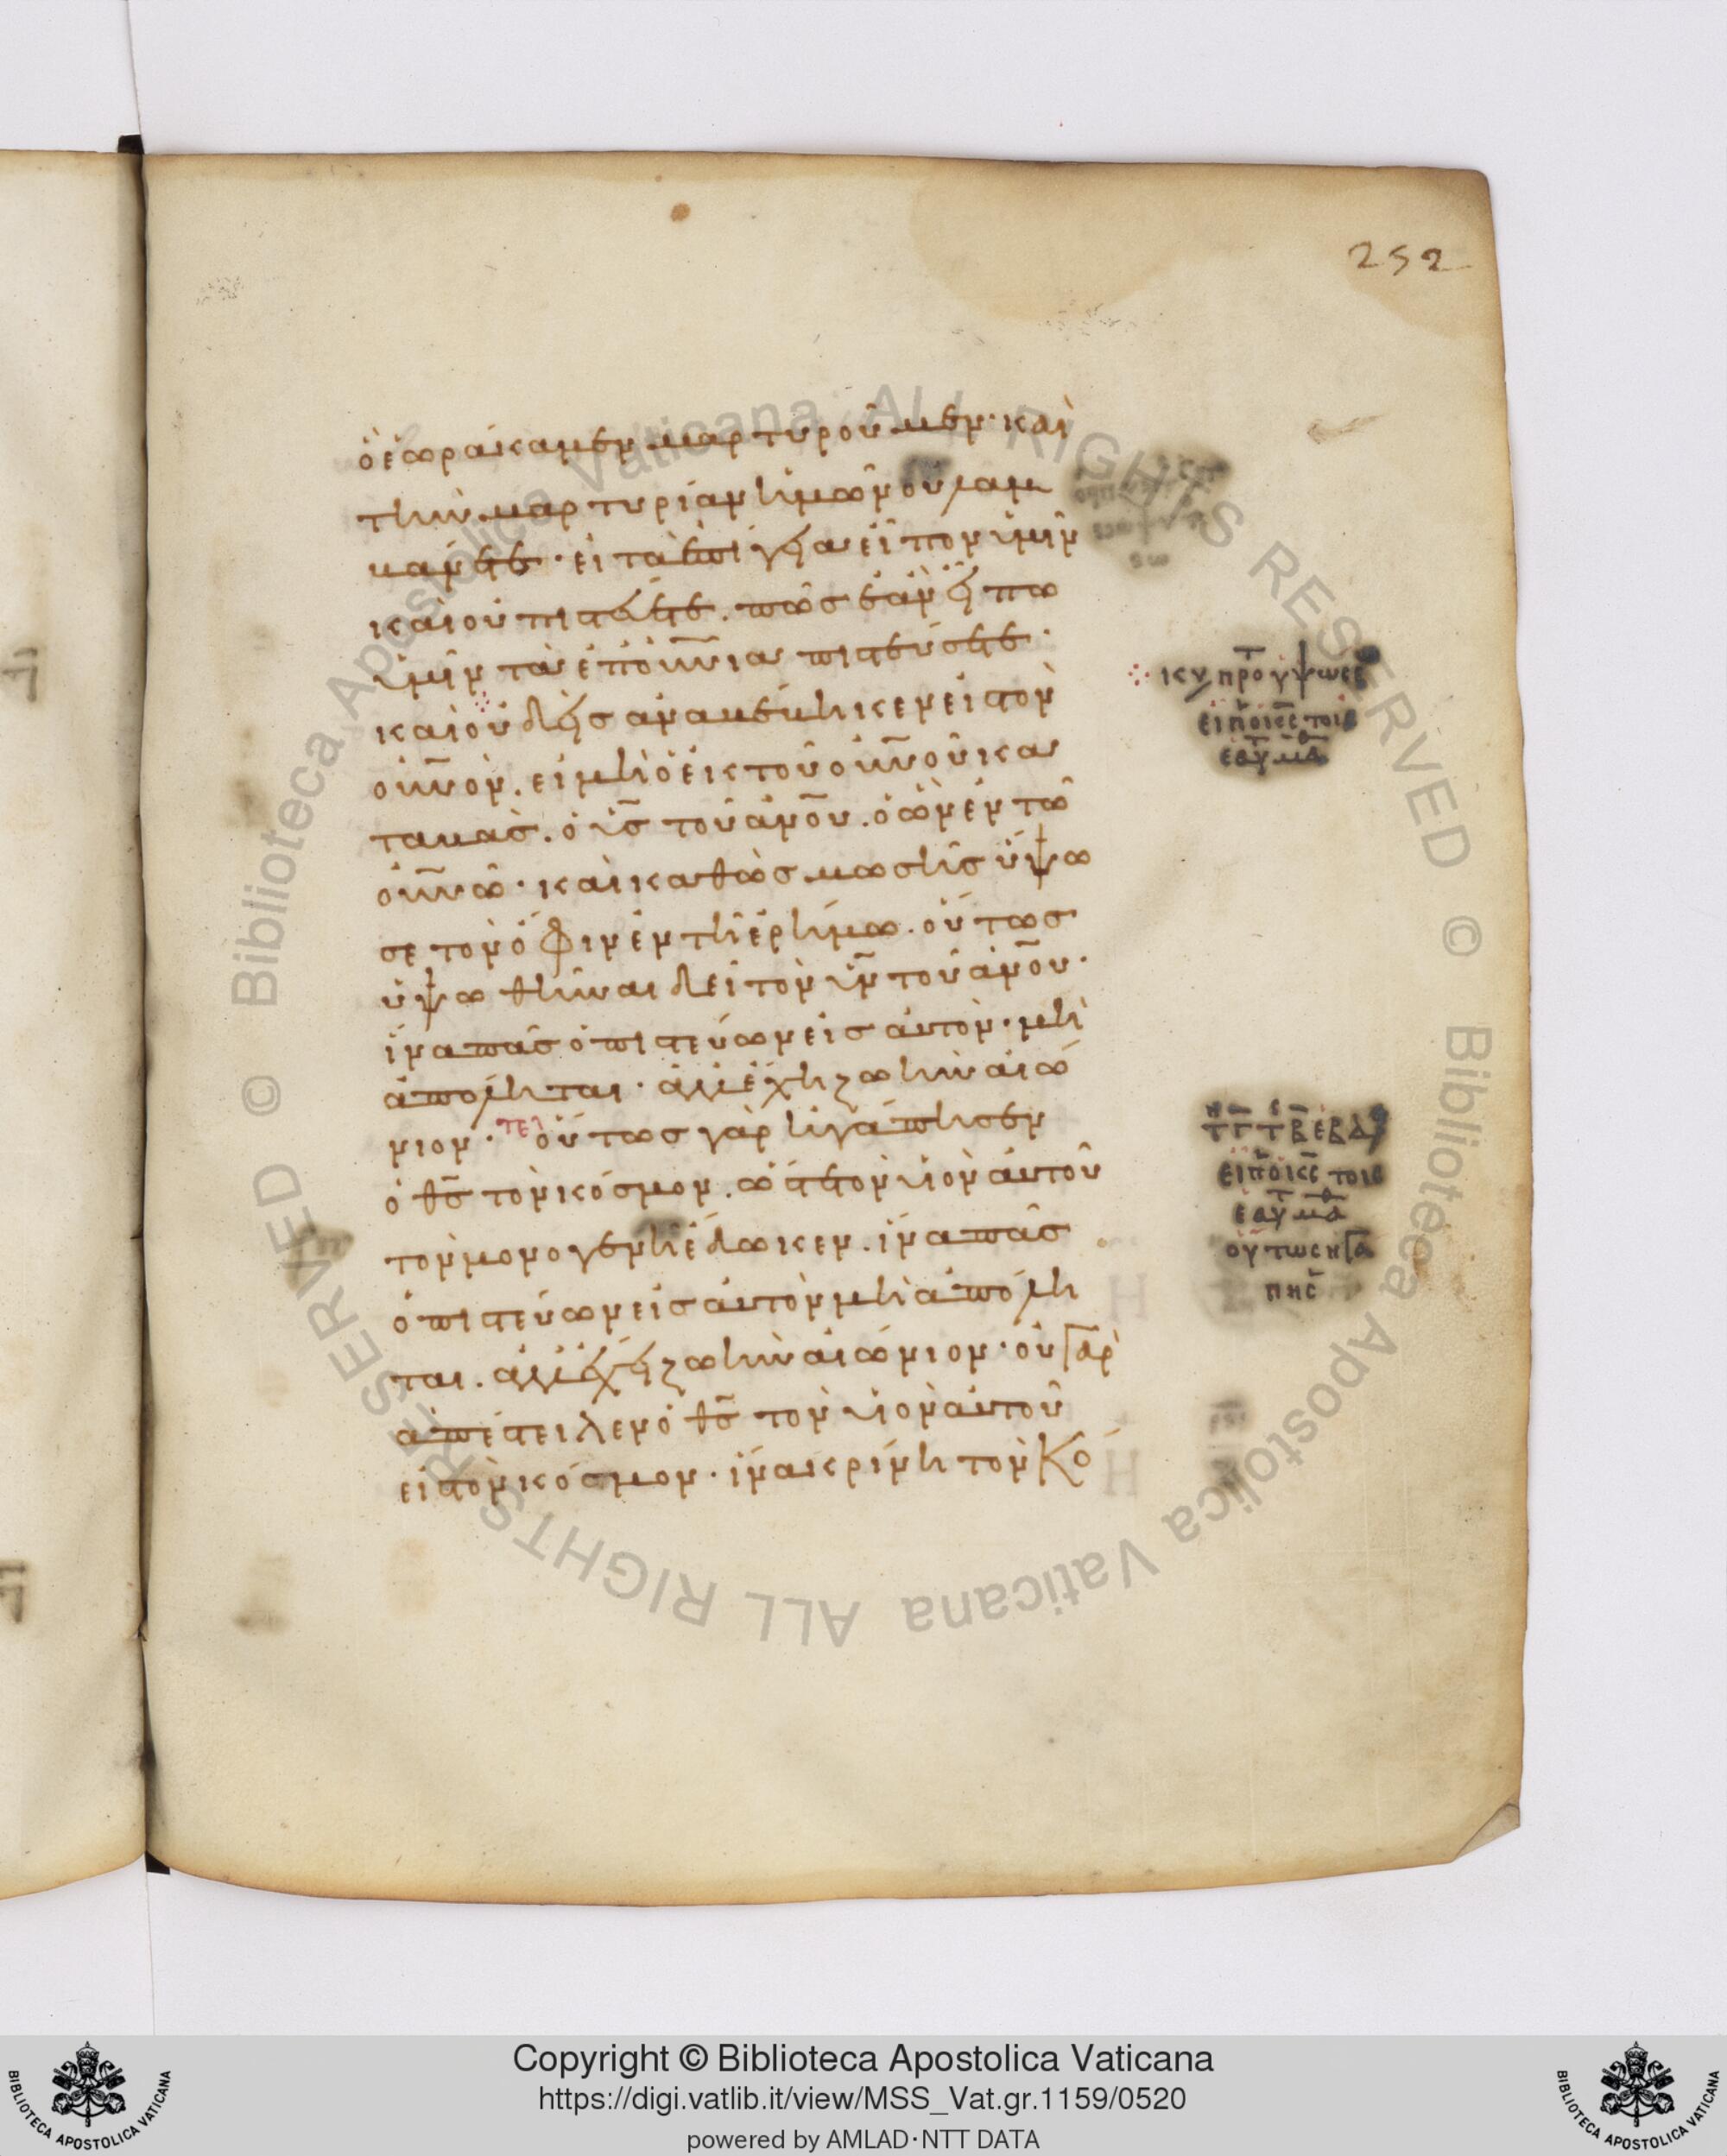 252
ὃ ἑωράκαμεν μαρτυροῦμεν· καὶ
τὴν μαρτυρίαν ἡμῶν οὐ λαμ
βάνετε· εἰ τὰ ἐπίγεια εἶπον ὑμῖν
καὶ οὐ πιστεύετε. πῶς ἐὰν εἴπω
ὑμῖν τὰ ἐπουνια πιστεύσετε·
καὶ οὐδεὶς ἀναβέβηκεν εἰς τὸν
οὐνον. εἰ μὴ ὁ ἐκ τοῦ οὐνοῦ κα
ταβάς. ὁ υς τοῦ ανου. ὁ ὢν ἐν τῶ
οὐνῶ· καὶ καθὼς μωσῆς ὕψω
σε τὸν ὄφιν ἐν τῆ ἐρήμω. οὕτως
ὑψωθῆναι δεῖ τὸν υν τοῦ ανου·
ἵνα πᾶς ὁ πιστεύων εἰς αὐτὸν· μὴ
ἀπόληται· ἀλλ ἔχη ζωὴν αἰώ
νιον· τελ οὕτως γὰρ ἠγάπησεν
ὁ θς τὸν κόσμον. ὥστε τὸν υἱὸν αὐτοῦ
τὸν μονογενῆ ἔδωκεν. ἵνα πᾶς
ὁ πιστεύων εἰς αὐτὸν μὴ ἀπόλη
ται. ἀλλ ἔχει ζωὴν αἰώνιον· οὐ γὰρ
ἀπέστειλεν ὁ θς τὸν υἱὸν αὐτοῦ
εἰς τὸν κόσμον· ἵνα κρίνη τὸν κό
∴ κυ προ υψωσε
ειπ ο κς τοις
εαυ μα
ειπ ο κς τοις
εαυ μα
ουτωσ ηγα
πησ
Copyright © Biblioteca Apostolica Vaticana
https://digi.vatlib.it/view/MSS_Vat.gr.1159/0520
powered by AMLAD·NTT DATA
BIBLIOTECA APOSTOLICA VATICANA
BIBLIOTECA APOSTOLICA VATICANA
© Biblioteca Apostolica Vaticana ALL RIGHTS RESERVED © Biblioteca Apostolica Vaticana ALL RIGHTS RESERVED